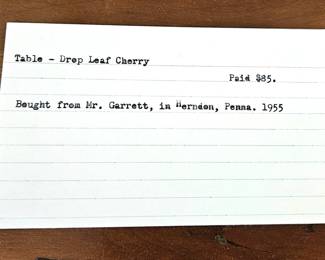 Table - Drop Leaf Cherry
Paid $85.
Bought from Mr. Garrett, in Herndon, Penna. 1955